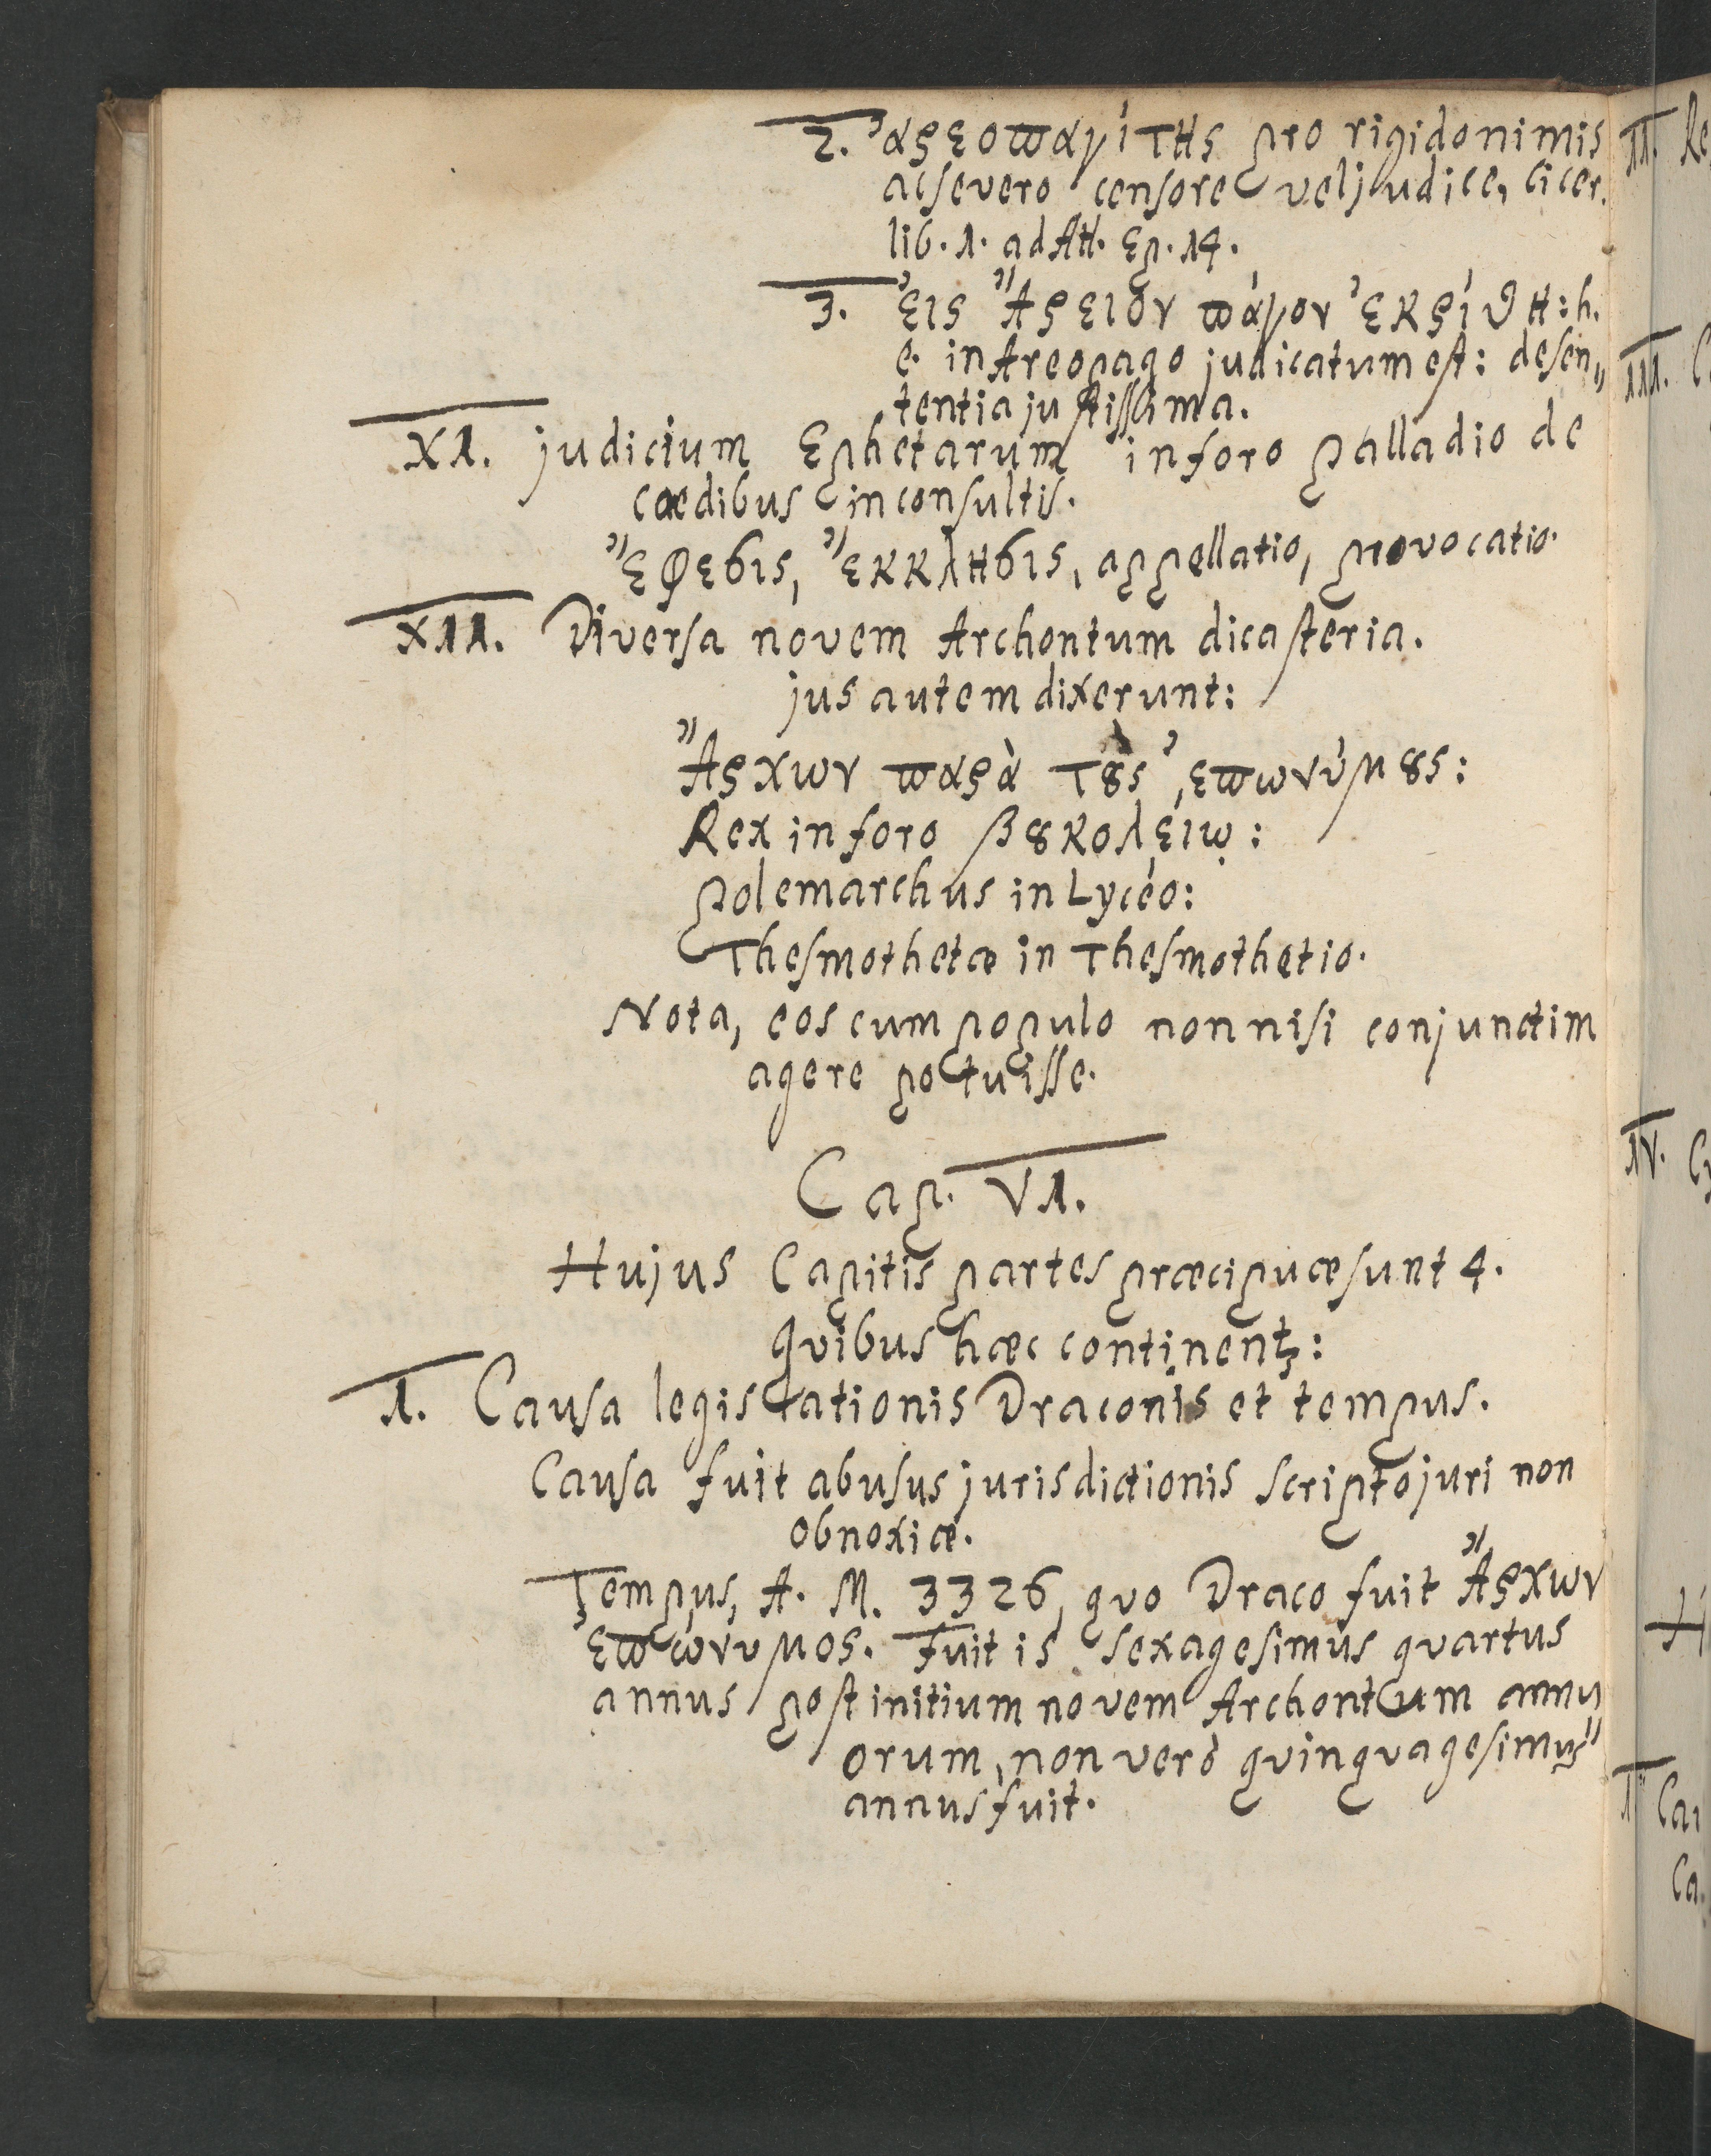 2. ἀρεοπαγίτης pro rigido nimis
ac severo censore vel judice, Cicer.
lib. 1. ad Att. Ep. 14.
3. ἐις Ἄρειον πάγον ἐκρίθη: h.
e. in Areopago judicatum est: de sen„
tentia justissima.
XI. judicium Ephetarum in foro Palladio de
cædibus inconsultis.
ἔφεσις, ἔκκλησις, appellatio, provocatio.
XII. Diversa novem Archontum dicasteria.
jus autem dixerunt:
Ἄρχων παρὰ τȣ̀ς ἐπωνύμȣς:
Rex in foro βȣκολείῳ:
Polemarchus in Lycéo:
Thesmothetæ in Thesmothetio.
Nota, eos cum populo non nisi conjunctim
agere potuisse.
Cap. VI.
Hujus Capitis partes præcipuæ sunt 4.
Qvibus hæc continent:
I. Causa legislationis Draconis et tempus.
Causa fuit abusus jurisdictionis scripto juri non
obnoxiæ.
Tempus, A. M. 3326, qvo Draco fuit Ἄρχων
ἐπώνυμος. Fuit is sexagesimus qvartus
annus post initium novem Archontum annu„
orum, non verò qvinqvagesimus
annus fuit.
II. Re
III. C
IV. Cy
H
I. Cau
Ca